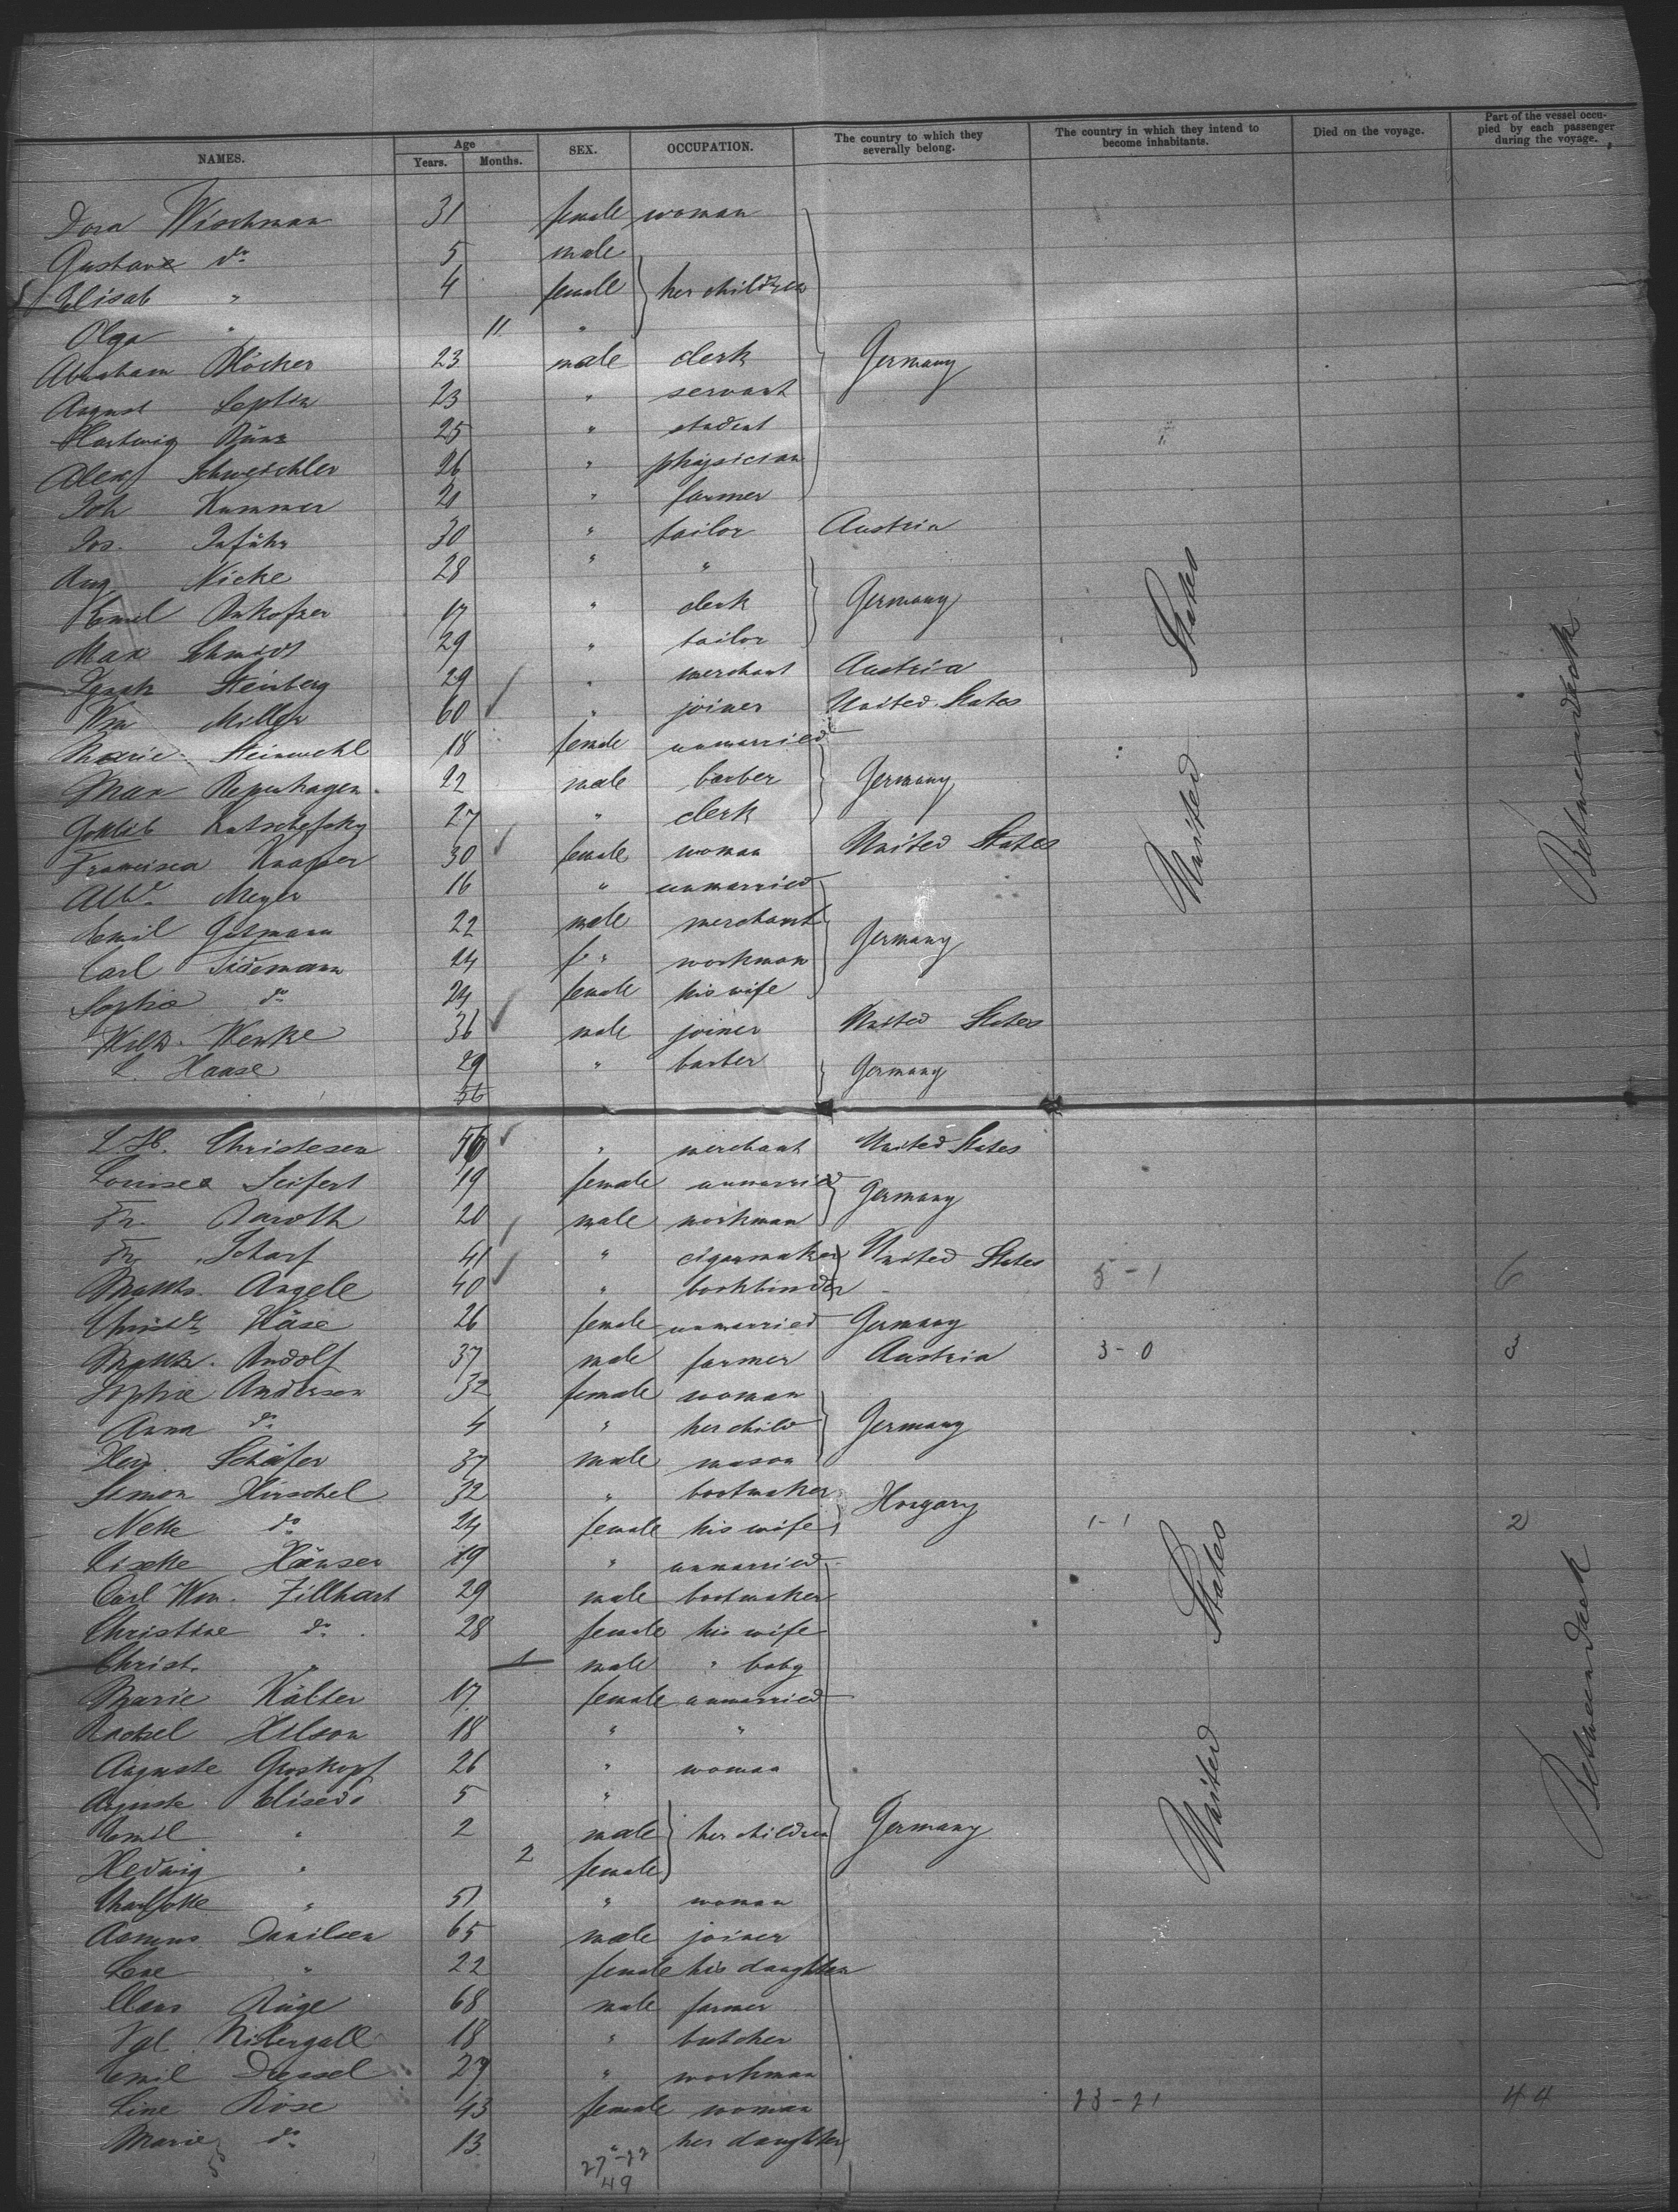 NAMES. Age Years. Months. SEX. OCCUPATION. The country to which they severally belong. The country in which they intend to become inhabitants. Died on the voyage. Part of the vessel occupied by each passenger during the voyage.
Dora Wischman 31 female woman
Gustav do 5 male
Elisab " 4 female her children
Olga " 11 "
Abraham Plöcker 23 male clerk Germany
August Leptin 23 " servant
Hartwig 25 " student
Alex Schweichler 26 " physician
Joh Kummer 21 " farmer
Jos. 30 " tailor Austria
Aug Nicke 28 " "
Emil 17 " clerk Germany
Max Schmidt 29 " tailor
Ignatz Steinberg 29 " merchant Austria
Wm Miller 60 " joiner United States
Marie Steinwehl 18 female unmarried
Max Repenhagen 22 male barber Germany
Gottlib 27 " clerk
Francisca Knapper 30 female woman United States
Albe Meyer 16 " unmarried
Emil Gutmann 22 male merchant Germany
Carl Tiedemann 24 " workman
Sophia do 24 female his wife
Wilh. Wenke 36 male joiner United States
L. Haase 29 " barber Germany
56
L. H. Christesen 56 " merchant United States
Louise Seifert 19 female unmarried Germany
Fr. Raroth 20 male workman
Fr. Scharf 41 " cigarmaker United States
Matths. Angele 40 " bookbinder 5-1 6
Christe Häse 26 female unmarried Germany
Matths. Rudolf 37 male farmer Austria 3-0 3
Sophie Anderson 32 female woman
Anna do 4 " her child Germany
Hein. Schäfer 37 male mason
Simon Hirschel 32 " bootmaker Hungary
Nette do 24 female his wife 1-1 2
Lisette Hänser 19 " unmarried
Carl Wm. Zillhart 29 male bootmaker
Christine do 28 female his wife
Christ. " 1 male " baby
Marie Kälter 17 female unmarried
Rachel Hilson 18 " "
Auguste Groskopf 26 " woman
Auguste Elise do 5 "
Emil " 2 male her children Germany
Hedwig " 2 female
Charlotte " 51 " woman
Asmus Danilsen 65 male joiner
Lene " 22 female his daughter
Claus Rüge 68 male farmer
Nibergall 18 " butcher
Emil Dressel 27 " workman
Line Rose 43 female woman 23-21 44
Marie do 13 " her daughter
27-22
49
United States
Betweendeck
United States
Betweendeck